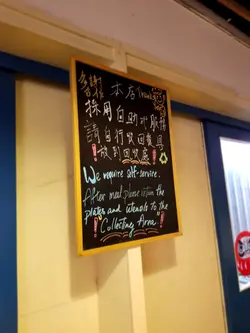 各位 本店
採用自助式服務
請自行收回餐具
!放到回收處!
We require self-service.
After meal, please return the
plates and utensils to the
! Collecting Area !